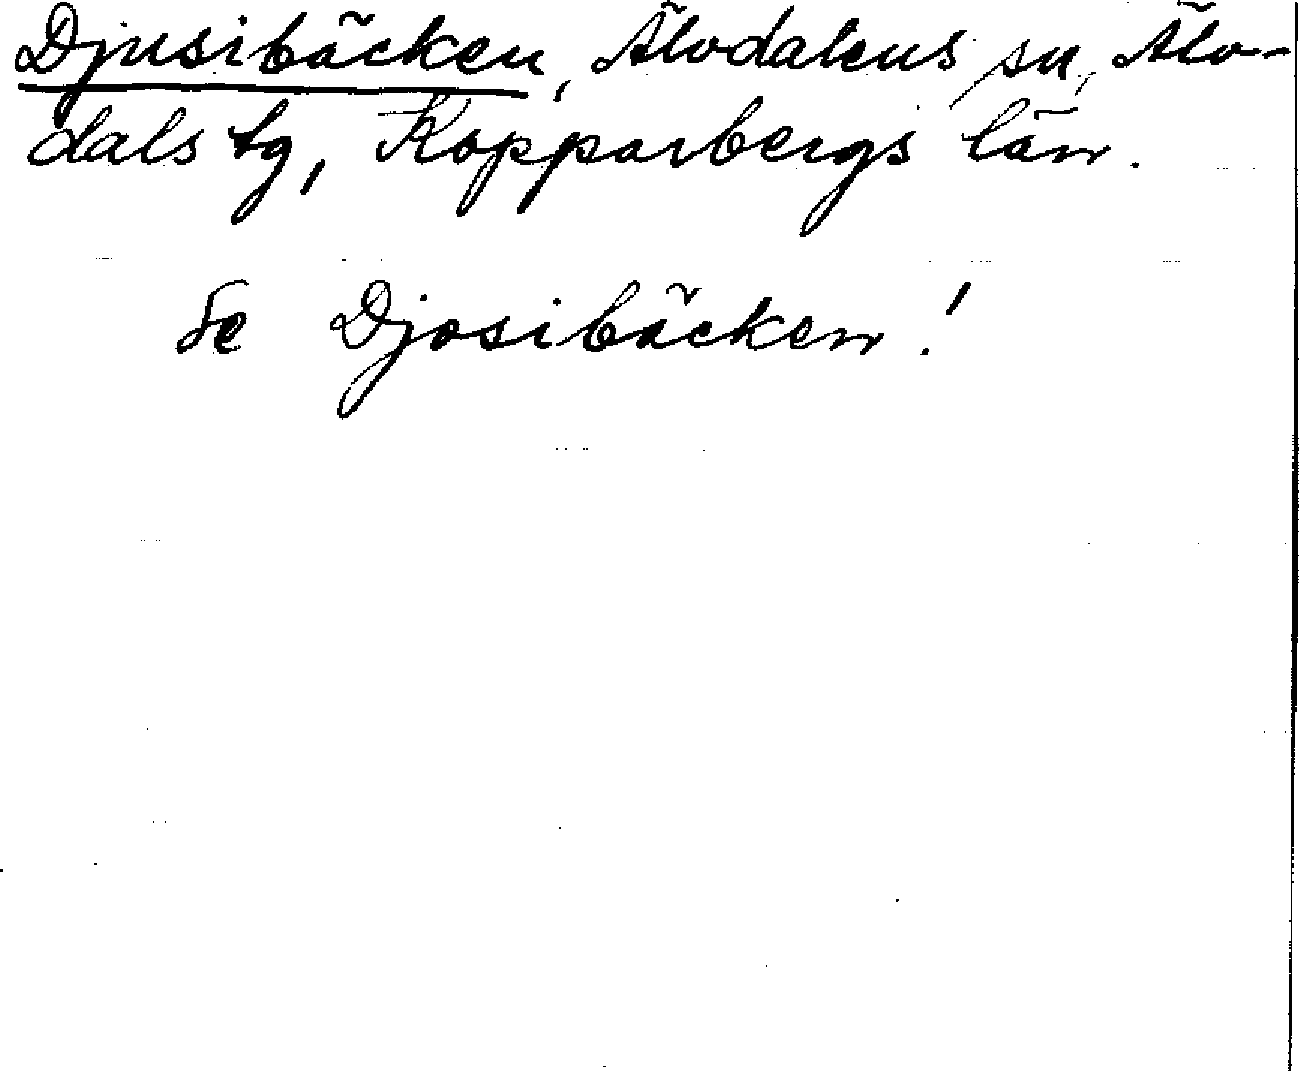 Djusibäcken, Älvdalens sn, Älv-
dals tg, Kopparbergs län.
Se Djosibäcken!